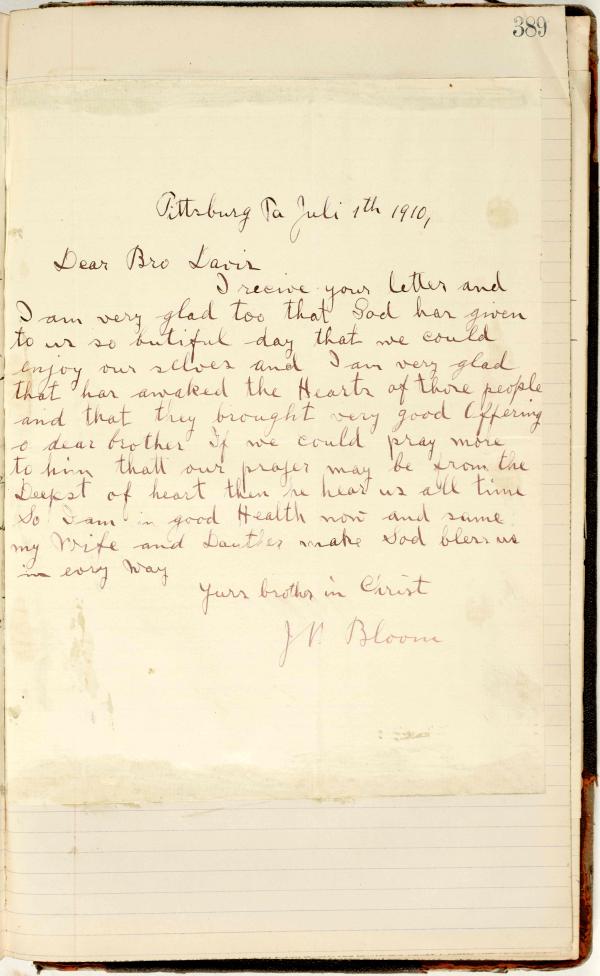 389
Pittsburg Pa Juli 1th 1910,
Dear Bro Davis
I recive your letter and
I am very glad too that God has given
to us so butiful day that we could
enjoy our selves and I am very glad
that has awaked the Hearts of those people
and that they brought very good Offering
o dear brother If we could pray more
to him thatt our prafer may be from the
Deepst of heart then he hear us all time
So I am in good Health now and same
my Wife and Dauther make God bless us
in eory way
yurs brother in Christ
Bloom